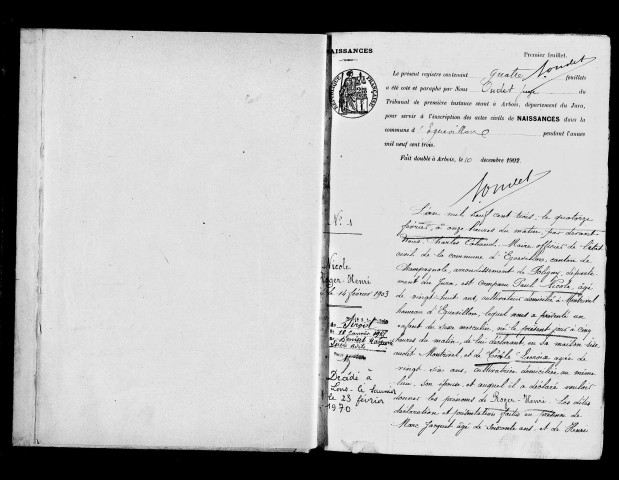 NAISSANCES
Premier feuillet.
Le présent registre contenant quatre feuillets
a été coté et paraphé par Nous Oudet Juge du
Tribunal de première instance séant à Arbois, département du Jura,
pour servir à l'inscription des actes civils de NAISSANCES dans la
commune d'Equevillon pendant l'année
mil neuf cent trois.
Fait double à Arbois, le 10 décembre 1902.
RÉPUBLIQUE FRANÇAISE
Oudet
N° 1
Nicole
Roger-Henri
le 14 février 1903
18 janvier
Décédé à
Lons-le-Saunier
le 23 février
1970
L'an mil neuf cent trois, le quatorze
février, à onze heures du matin par devant
Nous Charles Maire officier de l'état
civil de la commune d'Equevillon, canton de
Champagnole, arrondissement de Poligny, départe
ment du Jura, est comparu Paul Nicole, âgé
de vingt huit ans, cultivateur domicilié à Montrival
hameau d'Equevillon, lequel nous a présenté un
enfant du sexe masculin, né le présent jour à cinq
heures du matin, de lui déclarant, en sa maison sise
audit Montrival, et de Cécile agée de
vingt six ans, cultivatrice domiciliée au même
lieu, son épouse et auquel il a déclaré vouloir
donner les prénoms de Roger-Henri. Les dites
déclaration et présentation faites en présence de
Marc Jacquet âgé de soixante ans, et de Henri